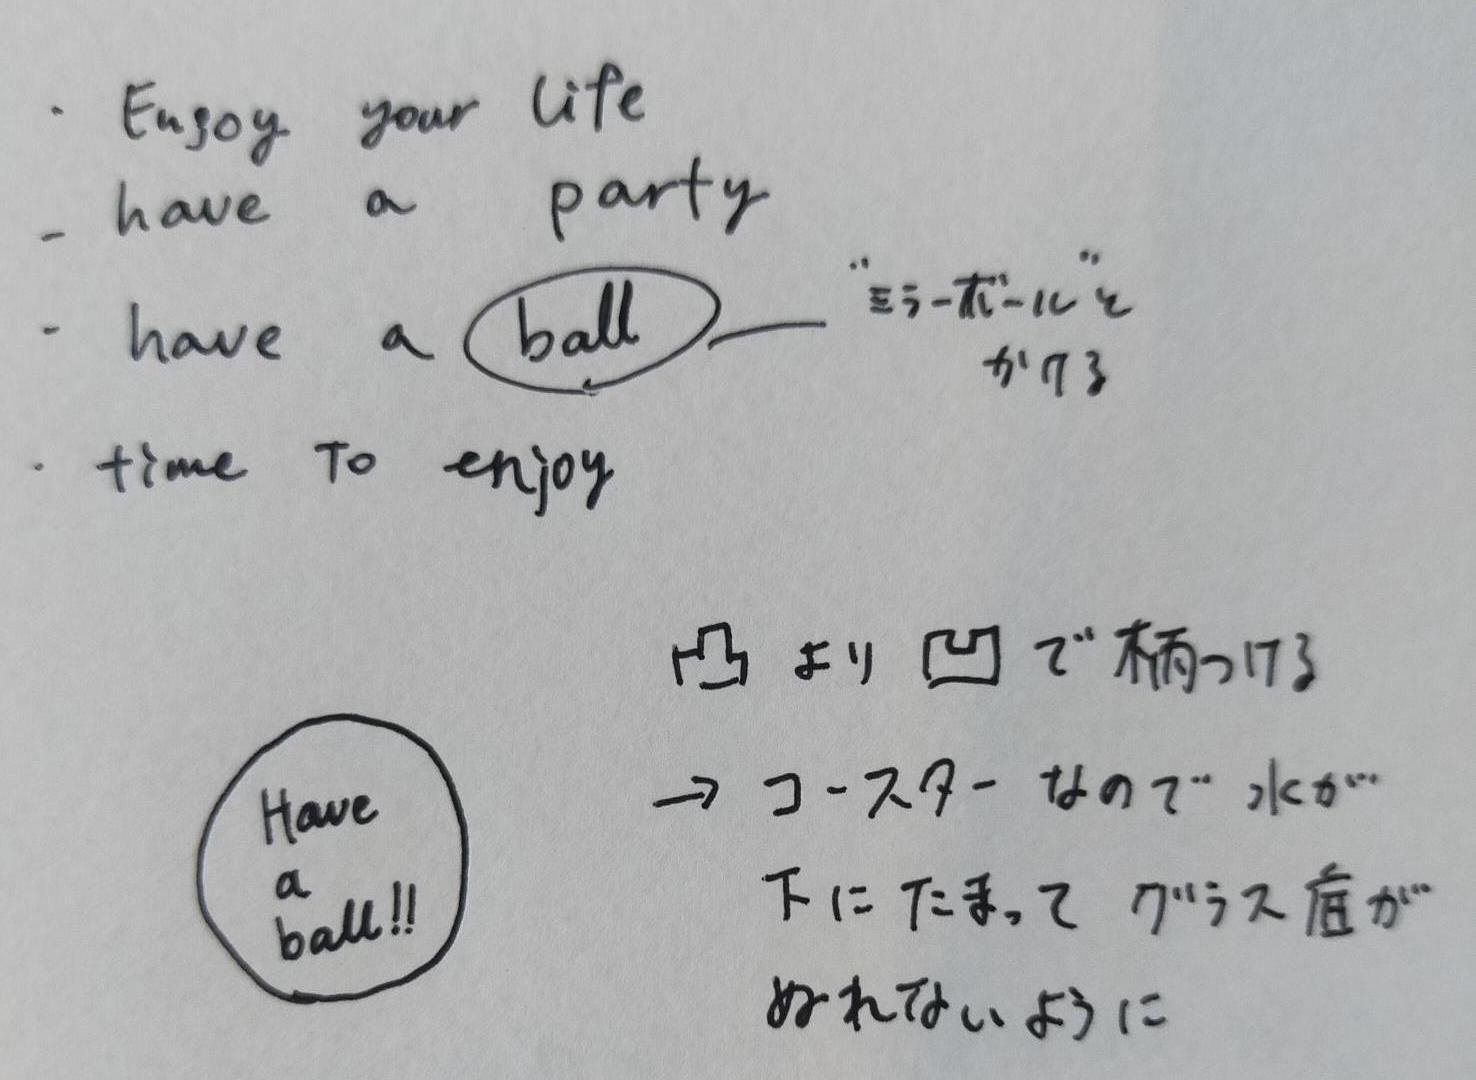 · Enjoy your life
- have a party
- have a ball
"ミラーボール"と
かける
· time To enjoy
凸より凹で柄つける
→ コースターなので水が
下にたまってグラス底が
ぬれてないように
Have
a
ball!!